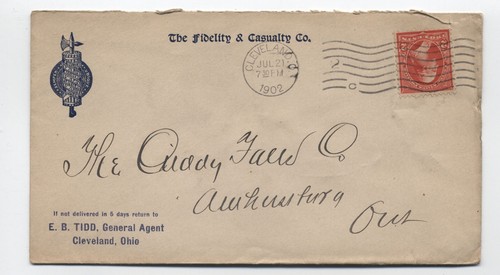 The Fidelity & Casualty Co.
CLEVELAND, O
JUL 21
7 30 PM
1902
The Cuddy Falls Co
Amherstburg
Ont
If not delivered in 5 days return to
E. B. TIDD, General Agent
Cleveland, Ohio